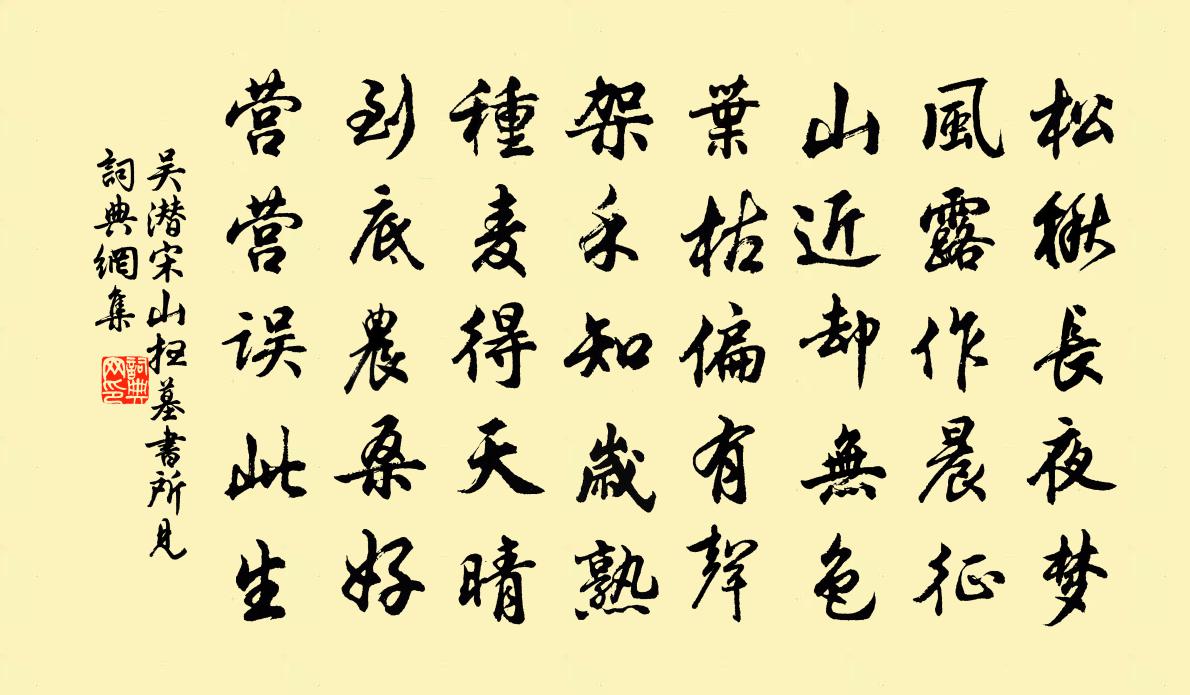 松楸長夜梦
風露作晨征
山近却無色
葉枯偏有聲
架禾知歲熟
種麦得天晴
到底農桑好
营营误此生
吴潜宋山扫墓書所見
詞典網集
詞典网印